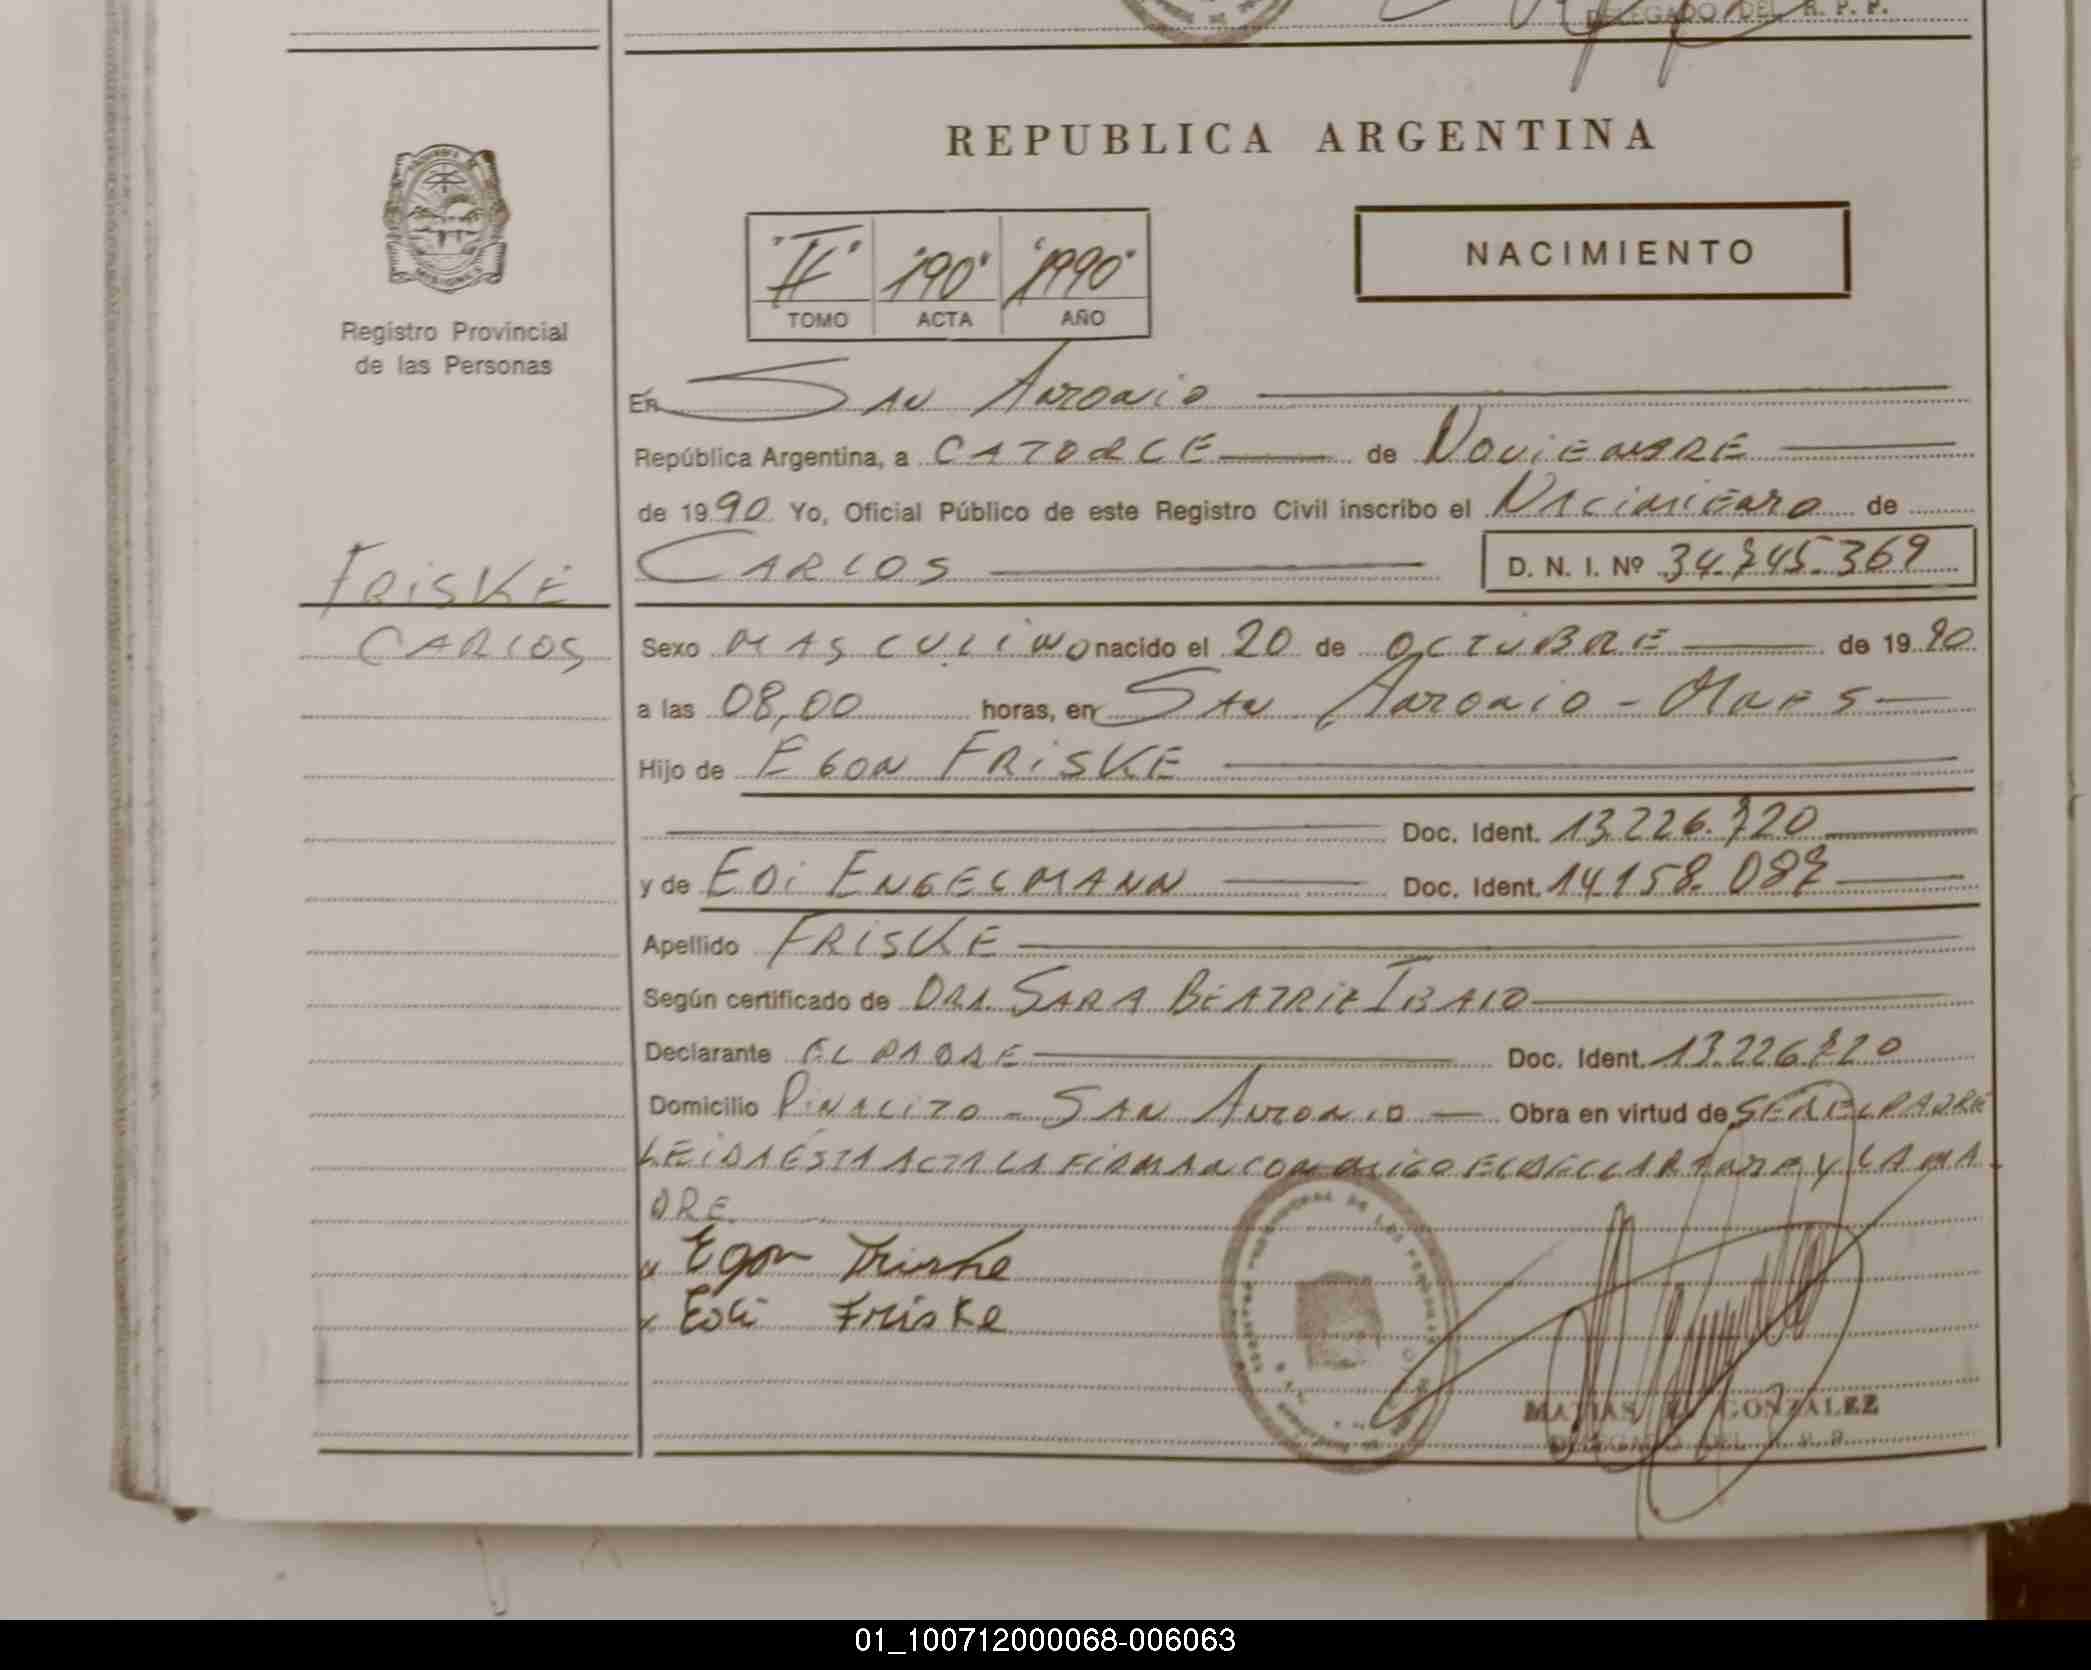 DELEGADO DEL R. P. P.
REPUBLICA ARGENTINA
NACIMIENTO
"II" "190" "1990"
TOMO ACTA AÑO
Registro Provincial
de las Personas
En SAN ANTONIO
República Argentina, a CATORCE de NOVIEMBRE
de 1990 Yo, Oficial Público de este Registro Civil inscribo el NACIMIENTO de
CARLOS D. N. I. Nº 34.745.369
FRISKE
CARLOS
Sexo MASCULINO nacido el 20 de OCTUBRE de 1990
a las 08,00 horas, en SAN ANTONIO - MNES
Hijo de EGON FRISKE
Doc. Ident. 13.226.720
y de EDI ENGELMANN Doc. Ident. 14.158.087
Apellido FRISKE
Según certificado de DRA. SARA BEATRIZ
Declarante EL PADRE Doc. Ident. 13.226.720
Domicilio PIÑALITO - SAN ANTONIO Obra en virtud de SER EL PADRE
LEIDA ESTA ACTA LA FIRMAN CONMIGO EL DECLARANTE Y LA MA-
DRE
x Egon Friske
x Edi Friske
MATIAS GONZALEZ
DELEGADO DEL R. P. P.
01_100712000068-006063